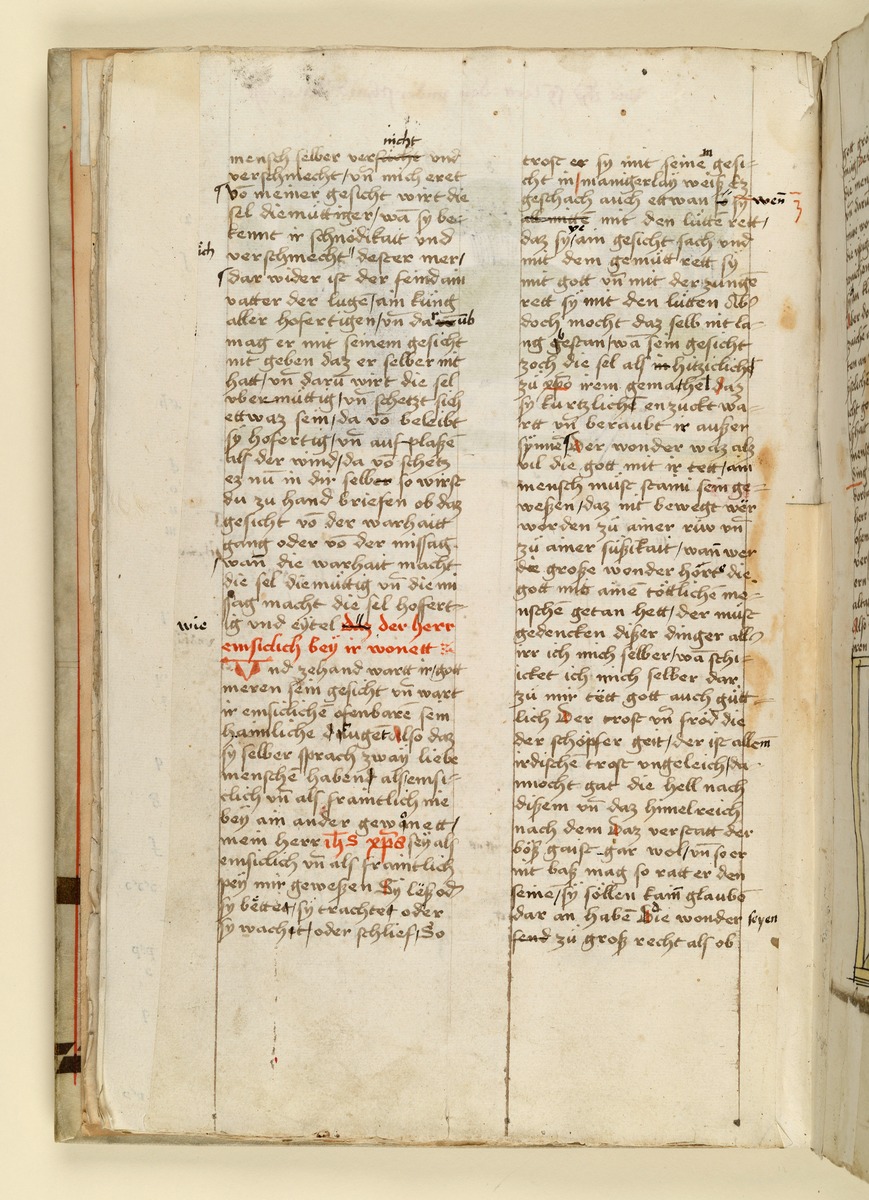 nicht
mensch selber verſ̶i̶c̶h̶t̶ und
verschmecht / vn̄ mich eret
võ meiner gesicht wirt die
sel diemüttiger / wā sy be⸗
kennt ir schnödikait und
ich
verschmecht dester mer /
dar wider ist der feind ain
vatter der lugē / ain küng
aller hofertigen / vn̄ dar üb
mag er mit seinem gesicht
nit geben daz er selber nit
hatt / vn̄ darū wirt die sel
über müttig / vn̄ schetzt sich
ettwaz sein / da võ beleibt
sy hofertig / vn̄ auf plaßē
als der wind / da võ schetz
ez nū in dir selber so wirst
du zu hand briefen ob daz
gesicht võ der warhaitt
gang oder võ der missag
wan̄ die warhait macht
die sel diemüttig vn̄ die mi
ssag macht die sel hoffert⸗
ig vnd eÿtel d̶a̶z̶ der herr
wie
emsiclich beÿ ir wonett
Vnd zehand wartt ir / gott
meren sein gesicht vn̄ wart
ir emsichchē ofenbarē sein
hamliche Also daz
sy selber sprach zwaÿ liebe
menschē haben als emsi⸗
clich vn̄ als fraintlich nie
beÿ ain ander gewonett /
mein herr ihs xp̄s seÿ als
emsiclich vn̄ als fraintlich
peÿ mir geweßen Sÿ lëß od̾
sy bëttet / sy trachtet oder
sy wacht / oder schlief / So
trost er sy mit seinem gesi⸗
cht in / manigerlaÿ weiß Ez
geschach auch ettwan so sy wen̄
mit den lüttē rett /
daz sy ain gesicht sach und
mit dem gemütt rett sy
mit gott vn̄ mit der zungē
rett sy mit den lütten Ab̾
doch mocht daz selb nit la⸗
ng gestan / wā sein gesicht
zoch die sel als hitziclich
zü xp̄o irem gemachel daz
sy kürtzlich enzuckt wa⸗
rtt vn̄ beraubt ir außer
synnē Der wonder waz alz
vil die gott mit ir tett / ain
mensch müst staini sein ge⸗
weßen / daz nit bewegt wër
worden zü ainer rüw vn̄
zü ainer süßikait / wan̄ wer
die große wonder hört die
gott mit ainē töttlichē me⸗
nschē getan hett / der müst
gedencken dißer dinger all̾
irr ich mich selber / wā schi⸗
icket ich mich selber dar
zü mir tëtt gott auch gütt⸗
lich Der trost vn̄ fröd die
der schöpfer geit / der ist allem
irdische trost vngeleich / da
nnocht gat die hell nach
dißem vn̄ daz himelreich
nach dem Daz verstatt der
böß gaist gar wol / vn̄ so er
nit baß mag so ratt er den
seinē / sy söllen kain̄ glaubē
dar an habē Die wonder seyen
s̶e̶n̶d̶ zü groß recht als ob